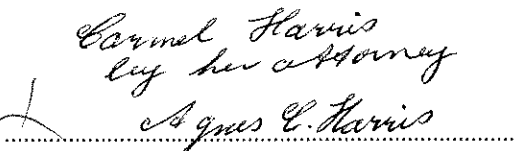 Carmel Harris
by her attorney
Agnes C. Harris